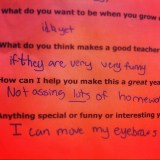 What do you want to be when you grow
idk yet
What do you think makes a good teacher
if they are very very funny
How can I help you make this a great year
Not assing lots of homewo
Anything special or funny or interesting
I can move my eyebars!